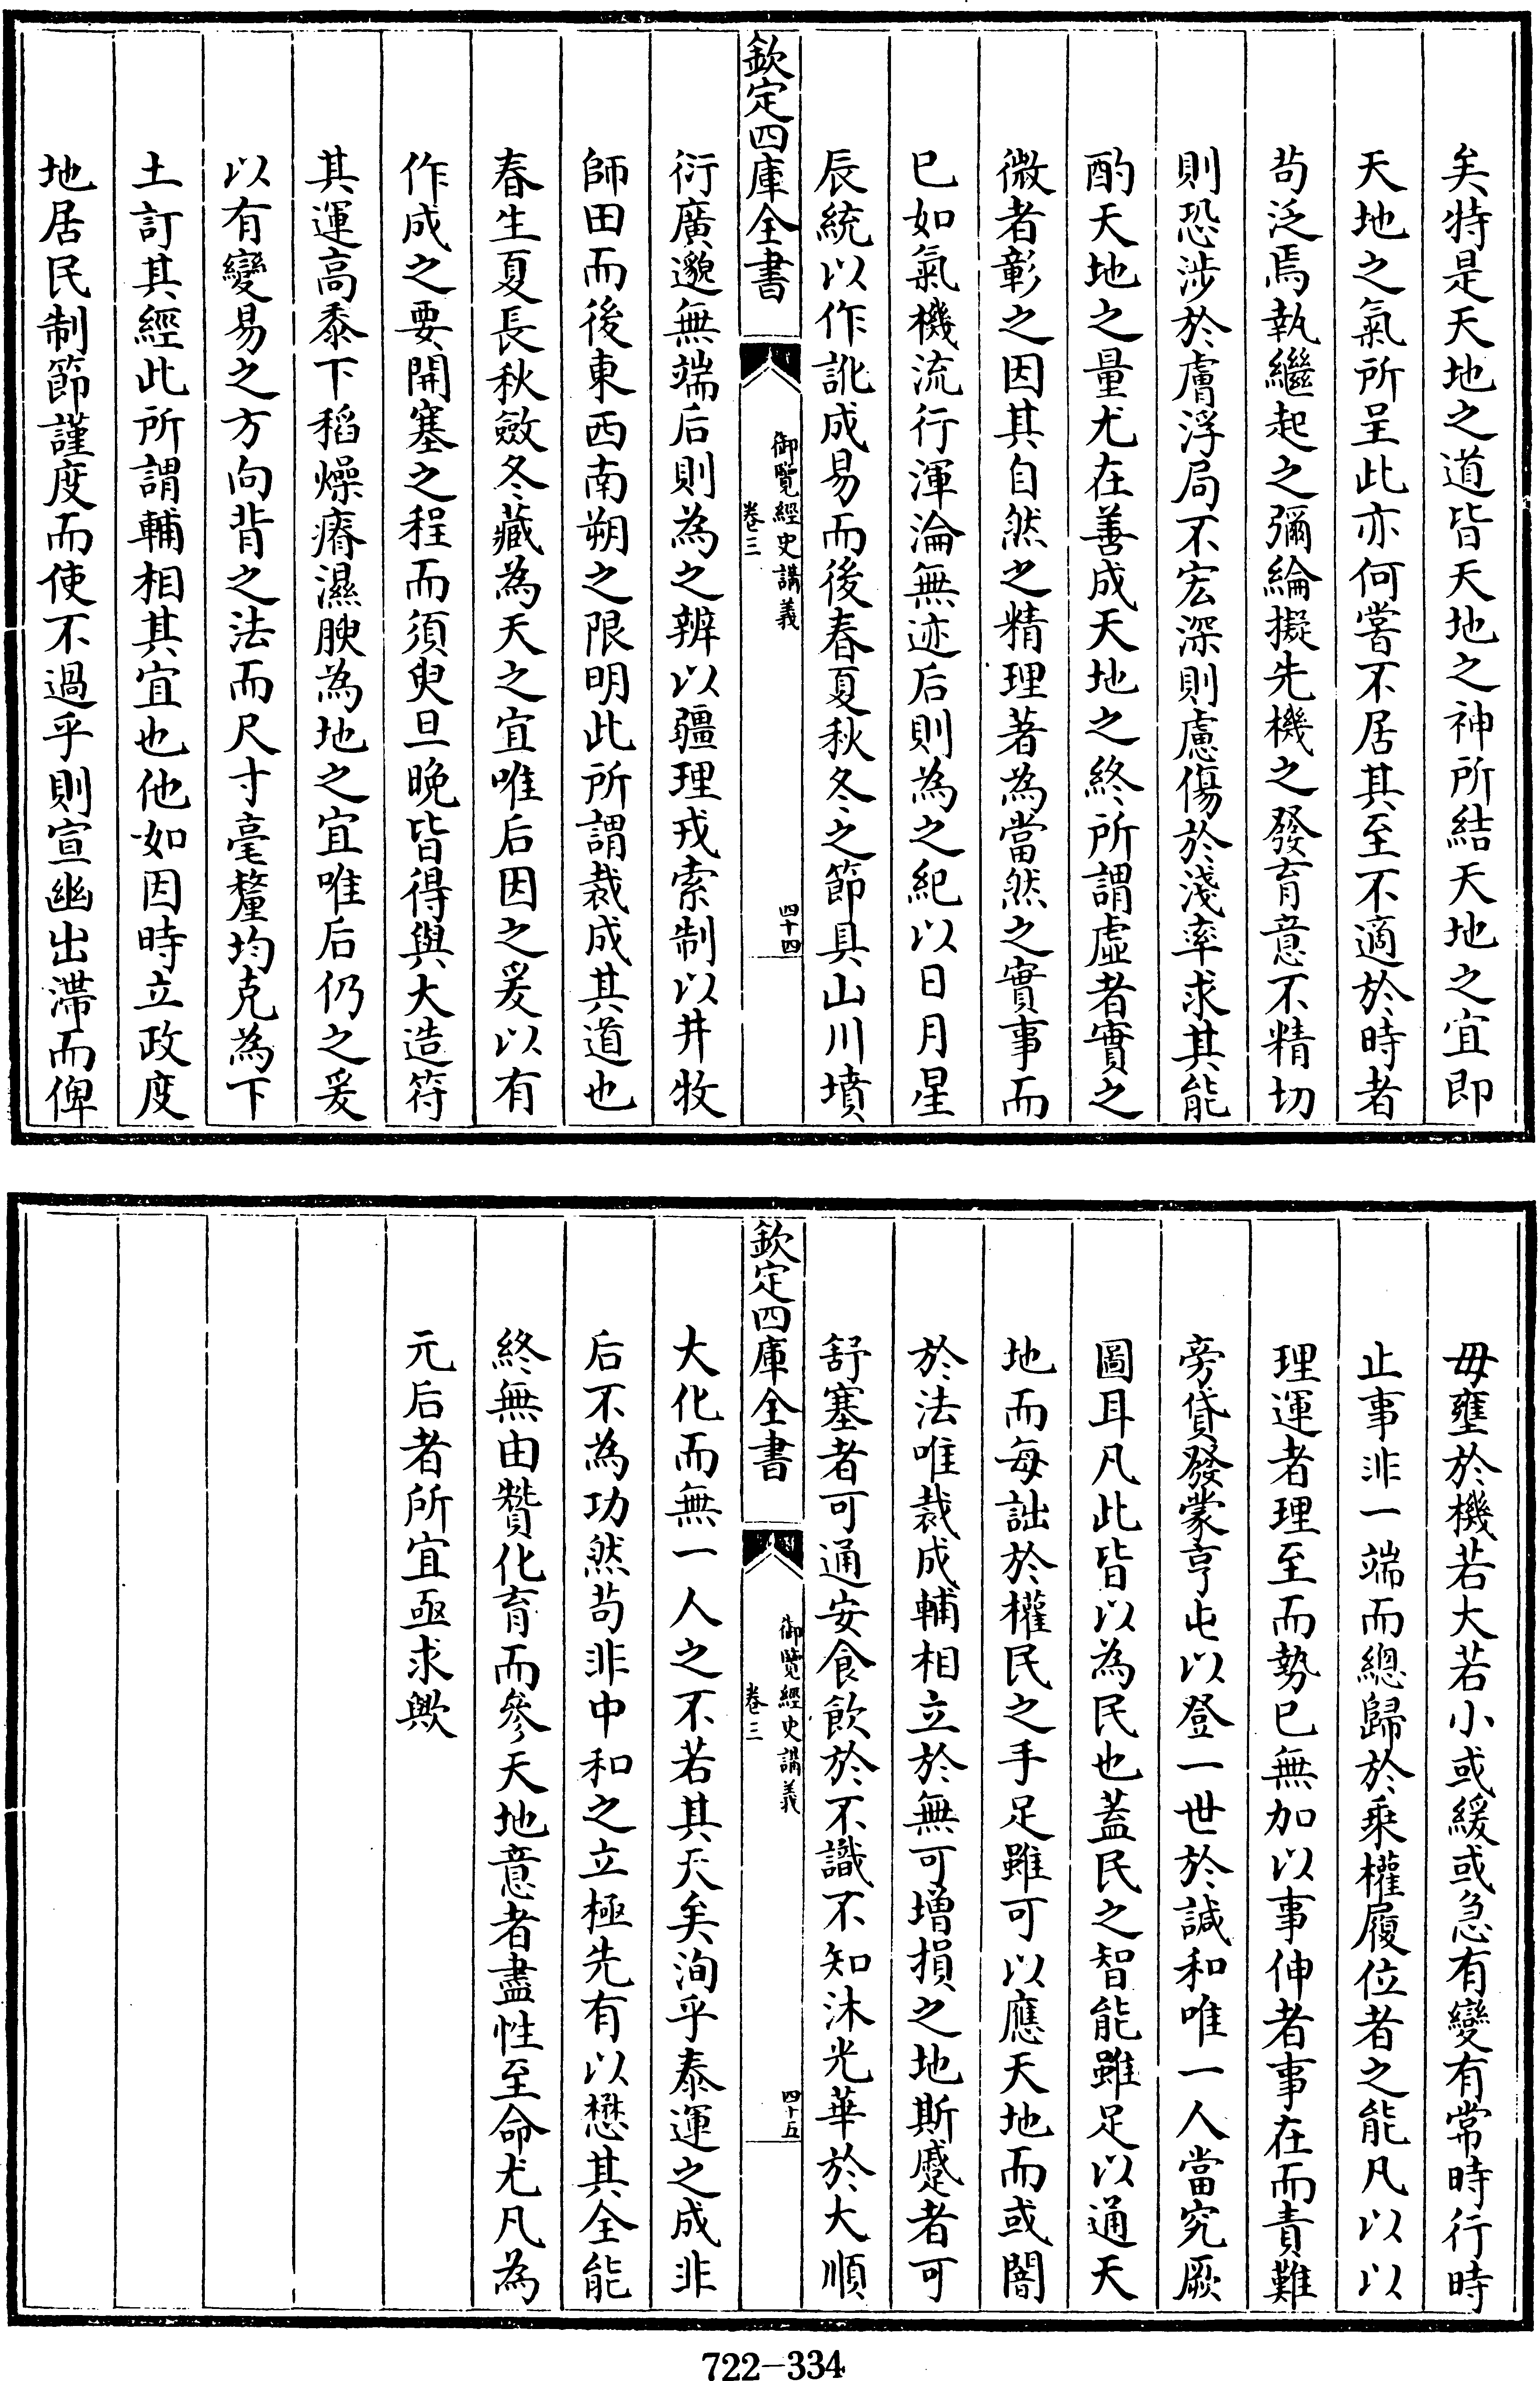 矣特是天地之道皆天地之神所結天地之宜即
天地之氣所呈此亦何嘗不居其至不適於時者
茍泛焉執繼起之彌綸擬先機之發育意不精切
則恐涉於膚浮局不宏深則慮傷於淺率求其能
酌天地之量尤在善成天地之終所謂虛者實之
微者彰之因其自然之精理著為當然之實事而
已如氣機流行渾淪無迹后則為之紀以日月星
辰統以作訛成易而後春夏秋冬之節具山川墳
欽定四庫全書
御覽經史講義
卷三
四十四
衍廣邈無端后則為之辨以疆理戎索制以井牧
師田而後東西南朔之限明此所謂裁成其道也
春生夏長秋斂冬藏為天之宜唯后因之爰以有
作成之要開塞之程而須臾旦晚皆得與大造符
其運高黍下稻燥瘠濕腴為地之宜唯后仍之爰
以有變易之方向背之法而尺寸毫釐均克為下
土訂其經此所謂輔相其宜也他如因時立政度
地居民制節謹度而使不過乎則宣幽出滯而俾
毋壅於機若大若小或緩或急有變有常時行時
止事非一端而總歸於乘權履位者之能凡以以
理運者理至而勢已無加以事伸者事在而責難
旁貸發蒙亨屯以登一世於諴和唯一人當究厥
圖耳凡此皆以為民也蓋民之智能雖足以通天
地而每詘於權民之手足雖可以應天地而或闇
於法唯裁成輔相立於無可增損之地斯蹙者可
舒塞者可通安食飲於不識不知沐光華於大順
欽定四庫全書
御覽經史講義
卷三
四十五
大化而無一人之不若其天矣洵乎泰運之成非
后不為功然茍非中和之立極先有以懋其全能
終無由贊化育而參天地意者盡性至命尤凡為
元后者所宜亟求歟
722-334